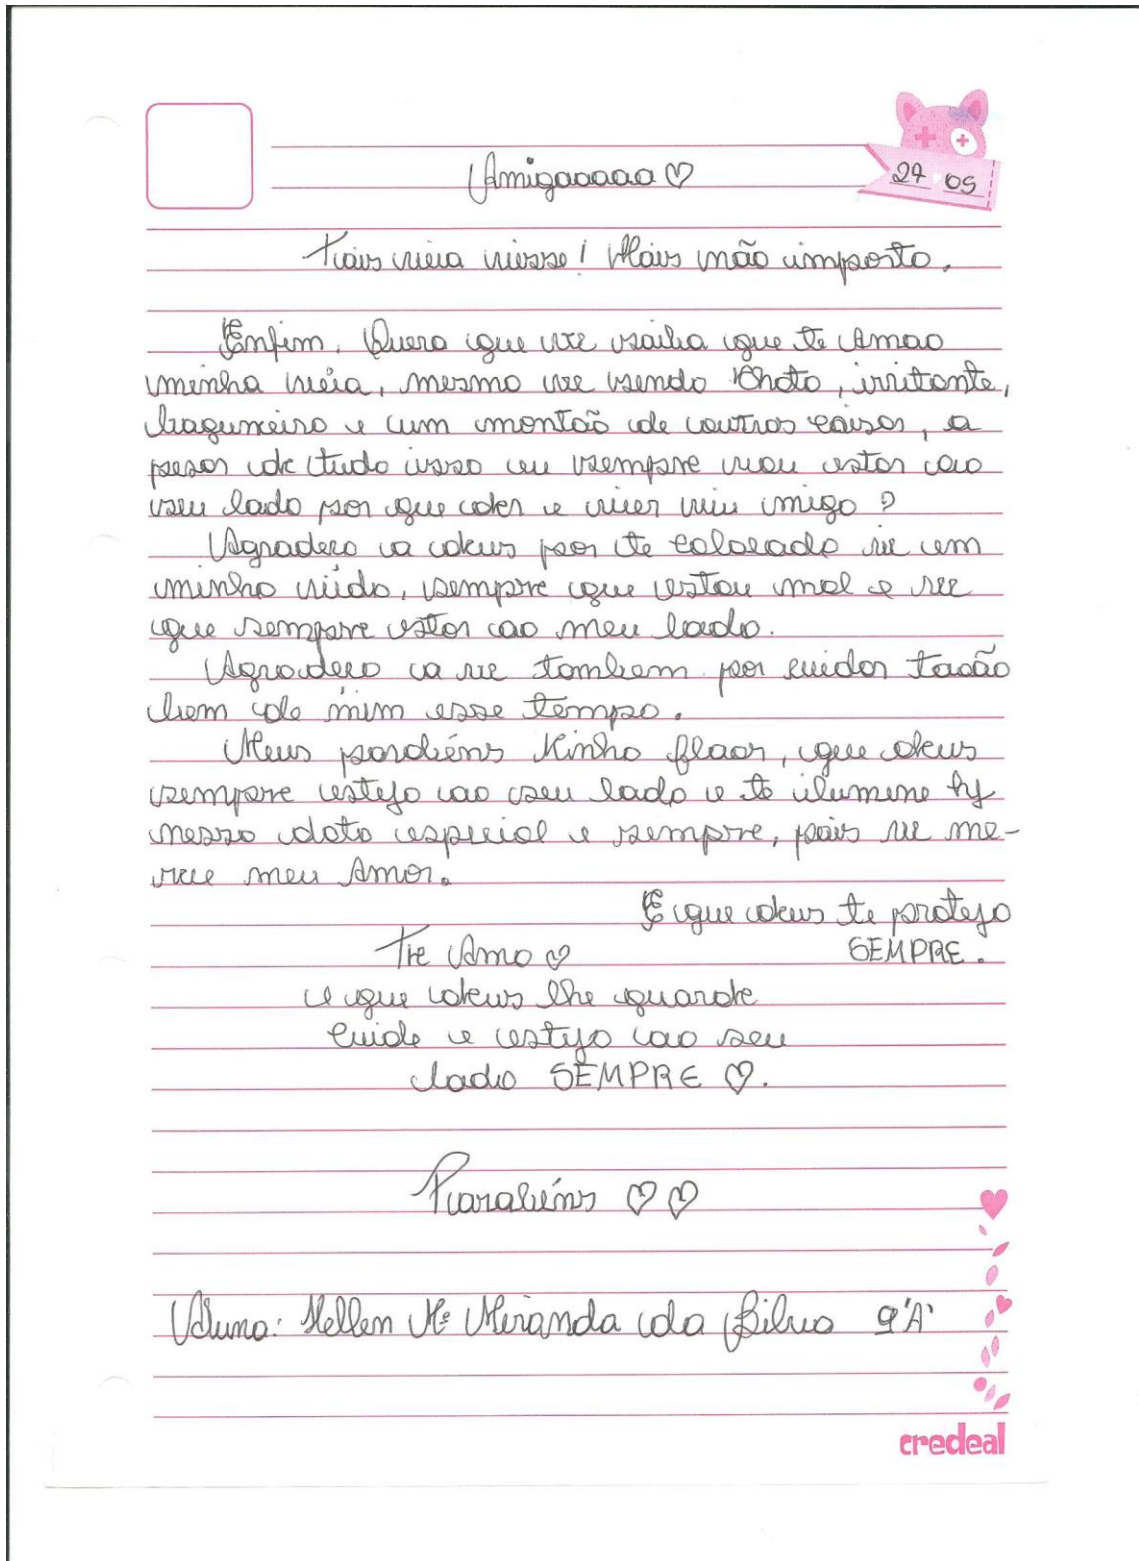 Amigaaaaa ♡
27 05
veia niesse! Mais não importo.
Enfim. Quero que vce saiba que te Amao
minha véia, mesmo vce sendo Chata, irritante,
bagunceira e um montão de outras coisas, a
pesar de tudo isso eu sempre vou estar ao
seu lado por que
Agradeço a deus por te colocado vc em
minha vida, sempre que estou mal e vce
que sempre estar ao meu lado.
Agradeço a vc tambem por cuidar taaão
bem de mim esse tempo.
Meus pardiéns Kinha flaor, que deus
sempre esteja ao seu lado e te ilumine hj
nessa data especial e sempre, pois vc me-
rece meu Amor.
E que deus te proteja
Tre Amo ♡ SEMPRE.
e que deus lhe guarde
Cuide e esteja ao seu
lado SEMPRE ♡.
Parabéns ♡ ♡
Aluna: Hellen Mª Miranda da Silva 9'A'
credeal